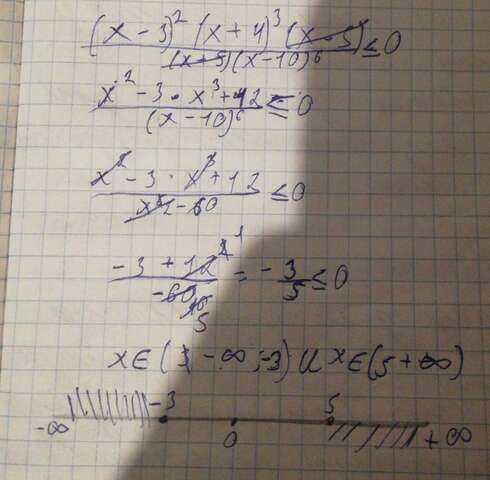 (x - 3)² (x + 4)³ (x - 5)
(x + 5)(x - 10)⁶ ≤ 0
x² - 3 · x³ + 12
(x - 10)⁶ ≤ 0
x² - 3 · x³ + 12
- 60 ≤ 0
-3 + 12 1
-60 = - 3/5 ≤ 0
5
x ∈ ( - ∞ ; -3) U x ∈ (5 + ∞)
-3 5
-∞ 0 + ∞